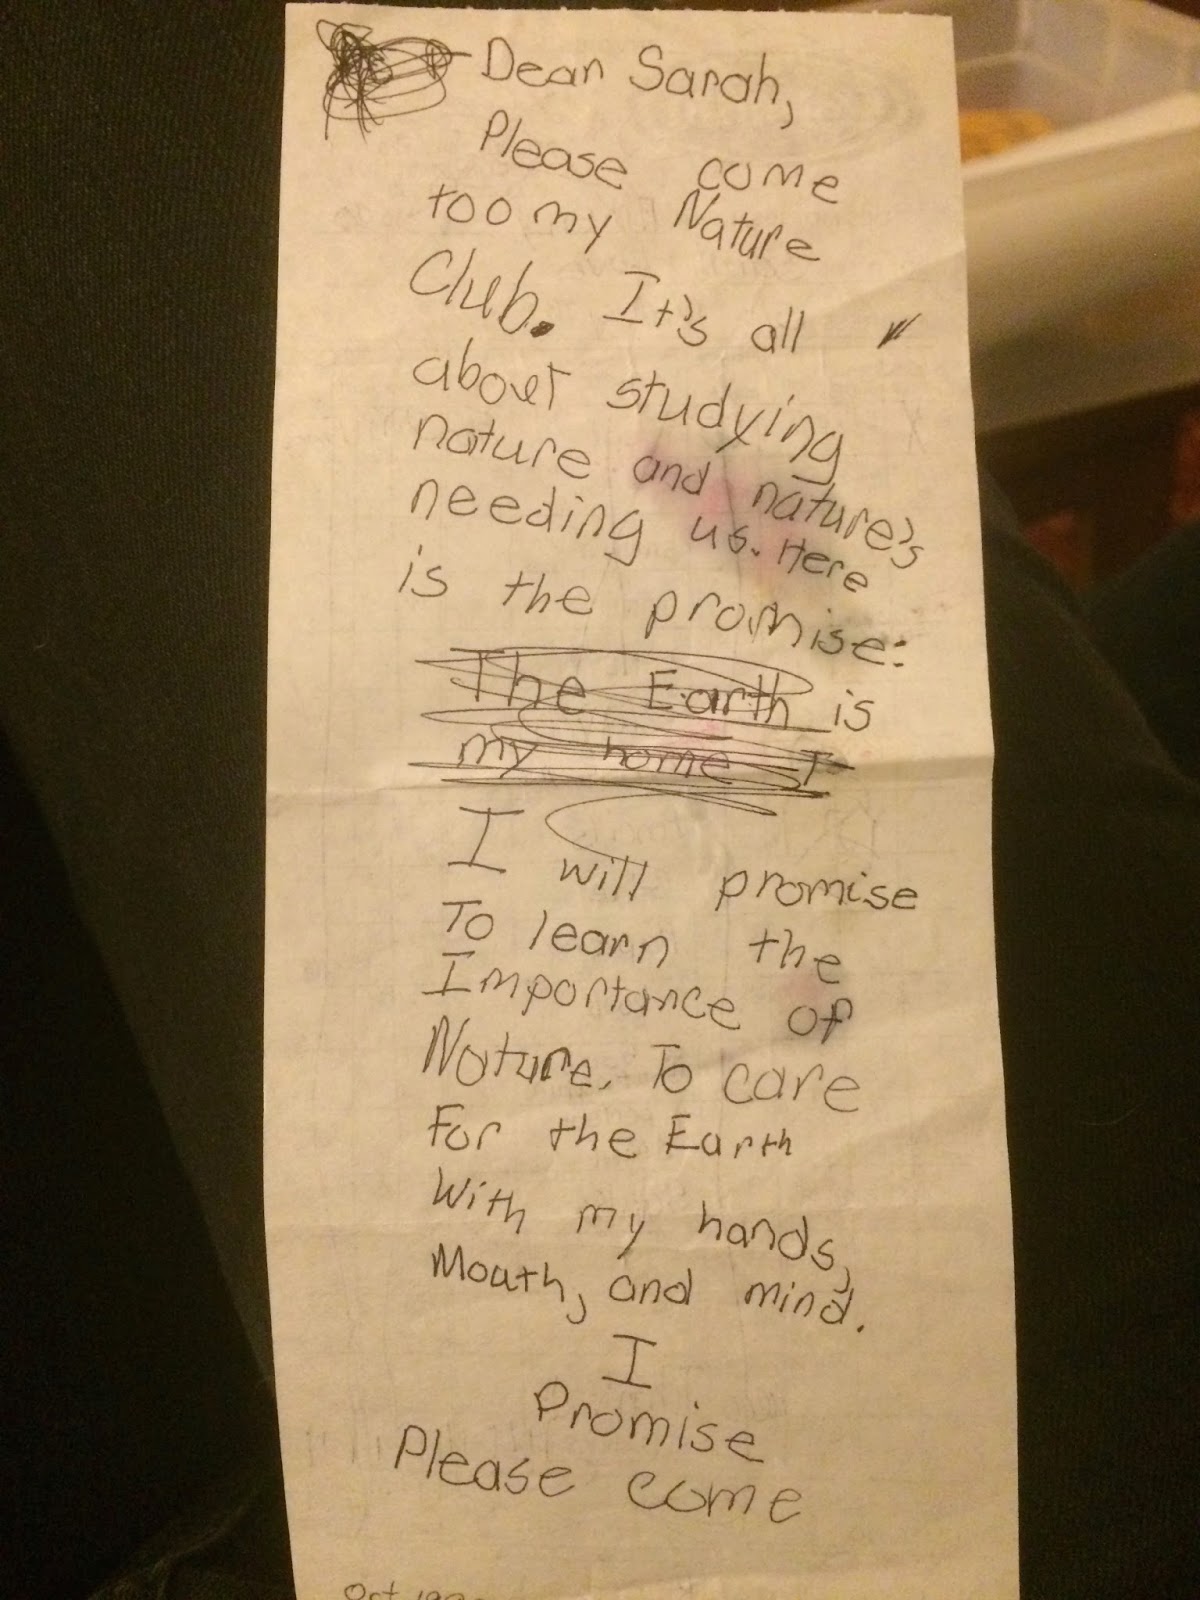 Dear Sarah,
Please come
too my Nature
Club. It's all
about studying
nature and nature's
needing us. Here
is the promise:
The Earth is
my home I
I will promise
To learn the
Importance of
Nature. To care
For the Earth
With my hands,
Mouth, and mind.
I
Promise
Please come
Oct